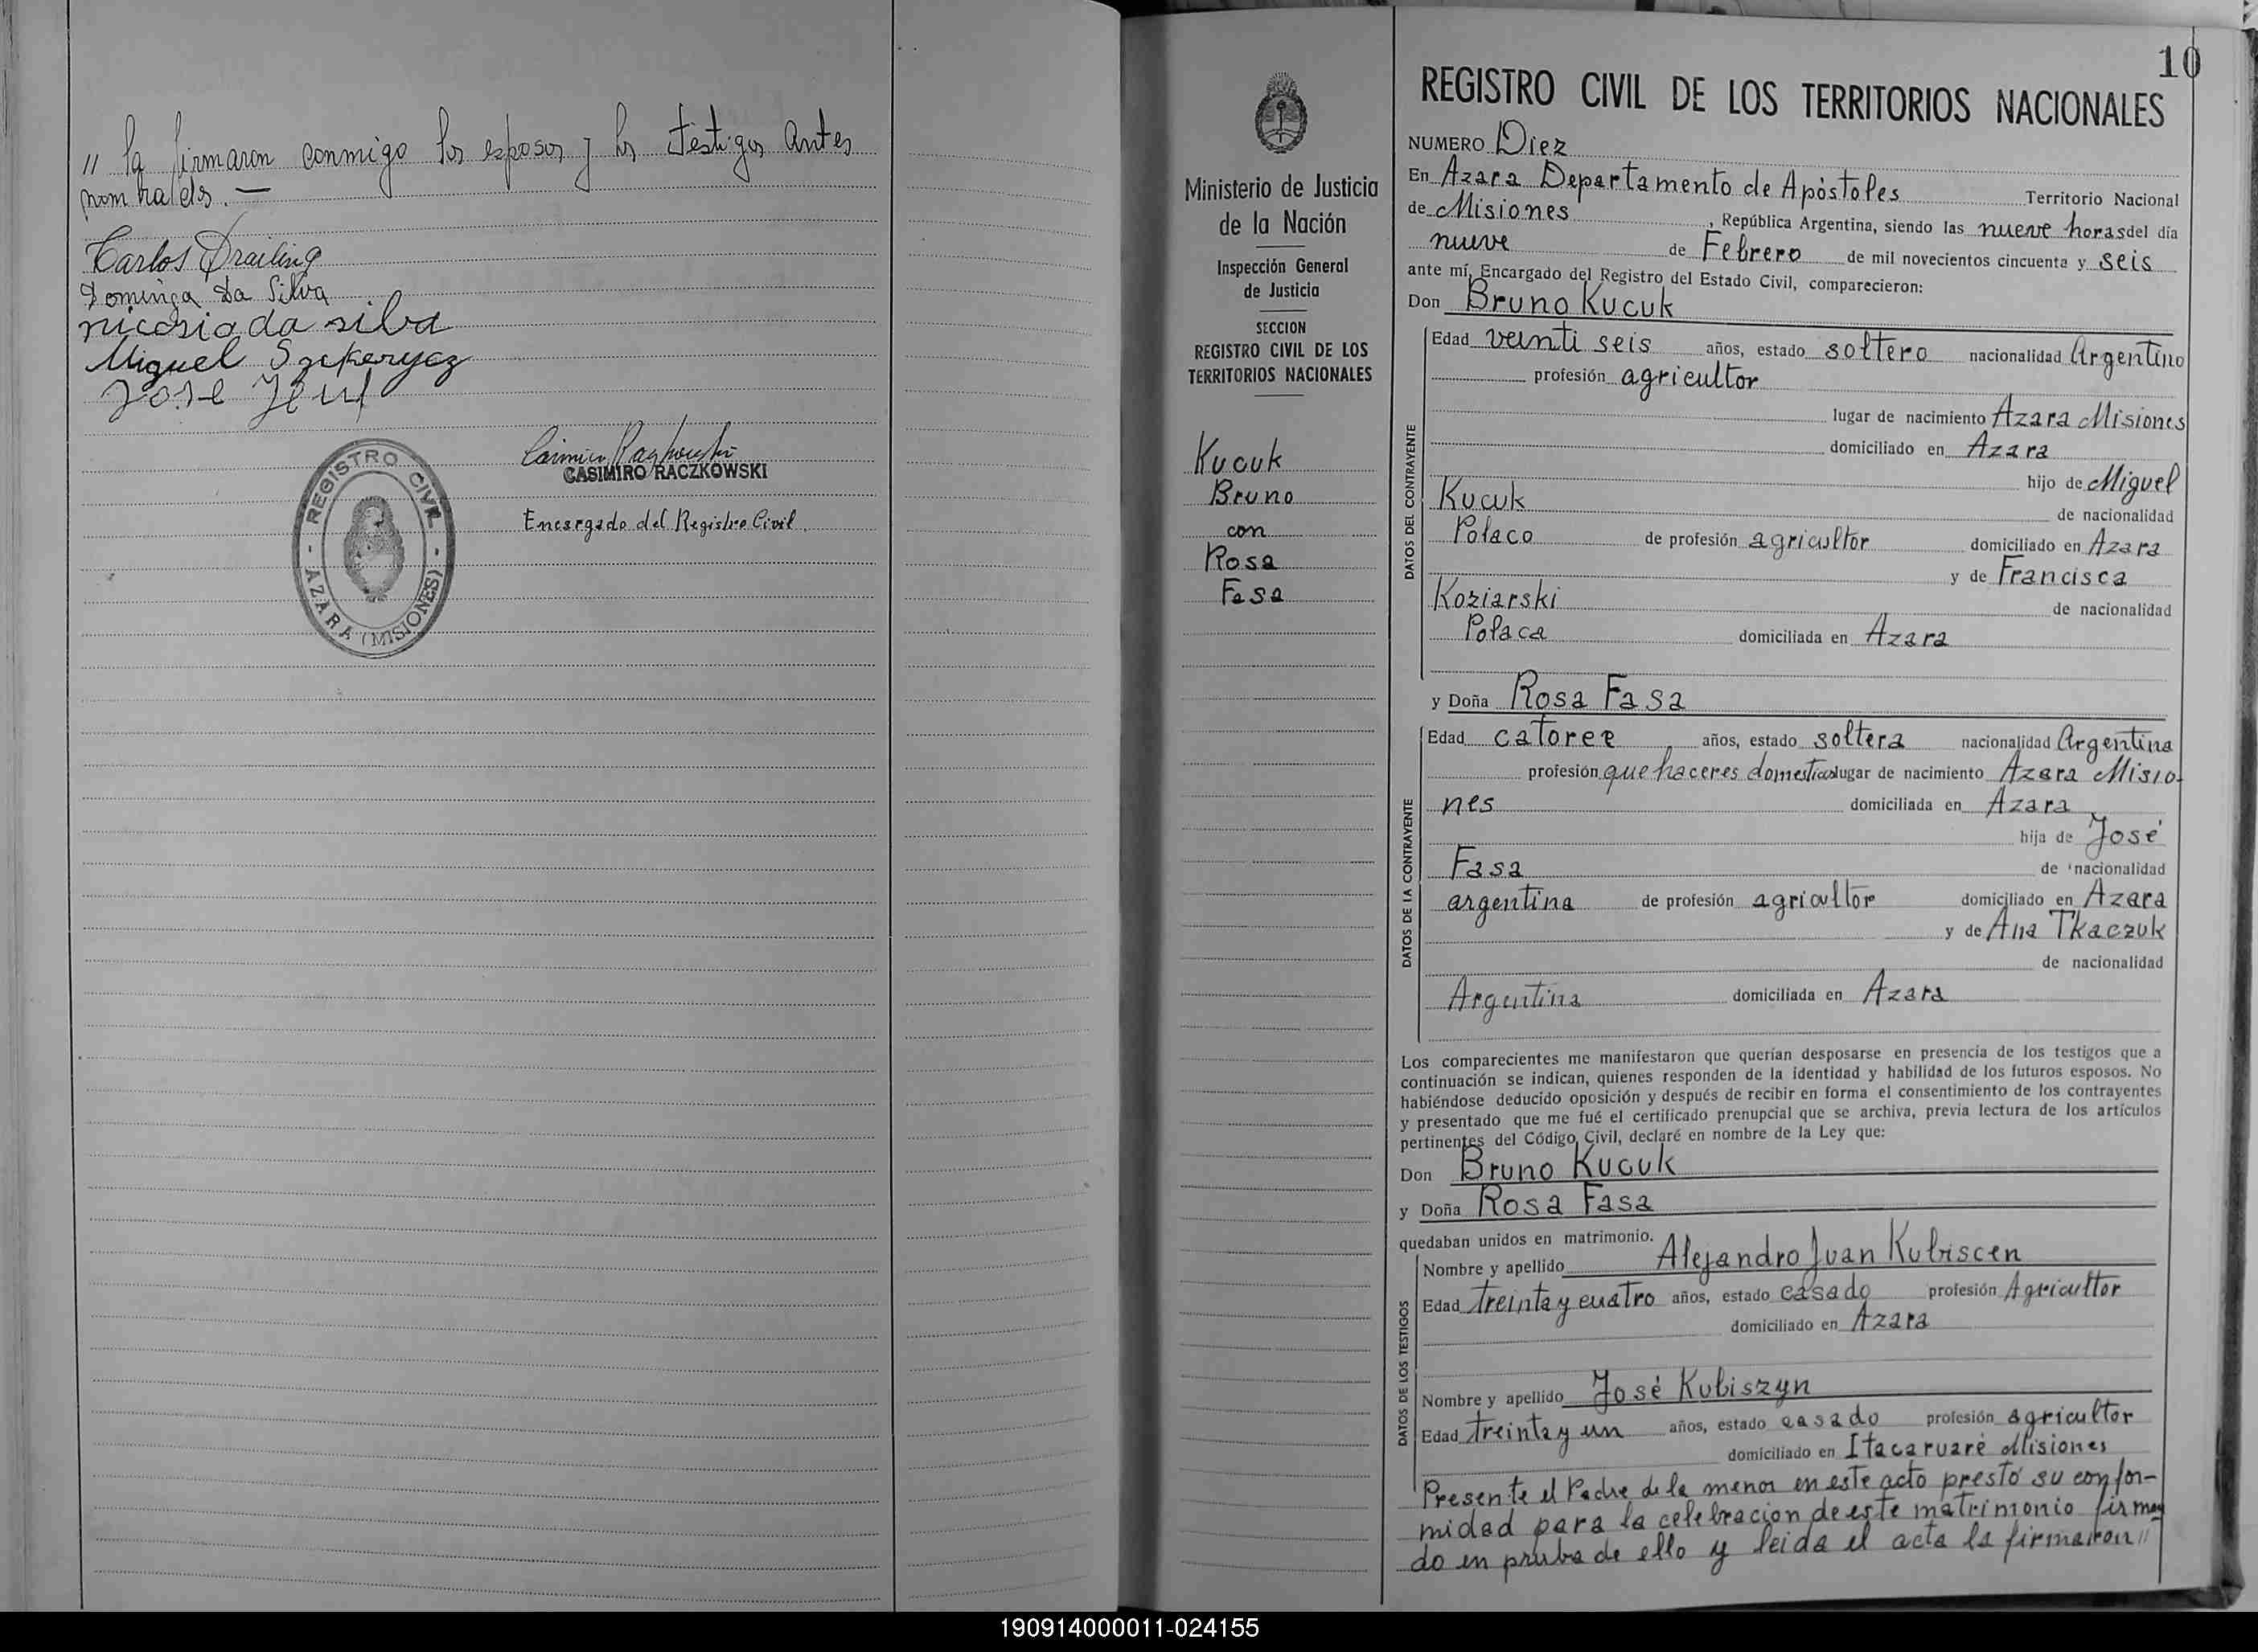 " la firmaron conmigo los esposos y los testigos antes
nombrados. —
Carlos Drailing
Dominga Da Silva
nicasio da silva
Miguel
José
CASIMIRO RACZKOWSKI
Encargado del Registro Civil.
- REGISTRO CIVIL -
AZARA (MISIONES)
Ministerio de Justicia
de la Nación
Inspección General
de Justicia
SECCION
REGISTRO CIVIL DE LOS
TERRITORIOS NACIONALES
Kucuk
Bruno
con
Rosa
Fasa
10
REGISTRO CIVIL DE LOS TERRITORIOS NACIONALES
NUMERO Diez
En Azara Departamento de Apóstoles Territorio Nacional
de Misiones, República Argentina, siendo las nueve horas del día
nueve de Febrero de mil novecientos cincuenta y seis
ante mí, Encargado del Registro del Estado Civil, comparecieron:
Don Bruno Kucuk
DATOS DEL CONTRAYENTE
Edad veinti seis años, estado soltero nacionalidad Argentino
profesión agricultor
lugar de nacimiento Azara Misiones
domiciliado en Azara
hijo de Miguel
Kucuk de nacionalidad
Polaco de profesión agricultor domiciliado en Azara
y de Francisca
Koziarski de nacionalidad
Polaca domiciliada en Azara
y Doña Rosa Fasa
DATOS DE LA CONTRAYENTE
Edad catorce años, estado soltera nacionalidad Argentina
profesión que haceres domesticos lugar de nacimiento Azara Misio-
nes domiciliada en Azara
hija de José
Fasa de nacionalidad
argentina de profesión agricultor domiciliado en Azara
y de Ana Tkaczuk
de nacionalidad
Argentina domiciliada en Azara
Los comparecientes me manifestaron que querían desposarse en presencia de los testigos que a
continuación se indican, quienes responden de la identidad y habilidad de los futuros esposos. No
habiéndose deducido oposición y después de recibir en forma el consentimiento de los contrayentes
y presentado que me fué el certificado prenupcial que se archiva, previa lectura de los artículos
pertinentes del Código Civil, declaré en nombre de la Ley que:
Don Bruno Kucuk
y Doña Rosa Fasa
quedaban unidos en matrimonio.
DATOS DE LOS TESTIGOS
Nombre y apellido Alejandro Juan Kubiscen
Edad treinta y cuatro años, estado casado profesión Agricultor
domiciliado en Azara
Nombre y apellido José Kubiszyn
Edad treinta y un años, estado casado profesión agricultor
domiciliado en Itacaruaré Misiones
Presente el Padre de la menor en este acto prestó su confor-
midad para la celebracion de este matrimonio firman
do en prueba de ello y leida el acta la firmaron"
190914000011-024155